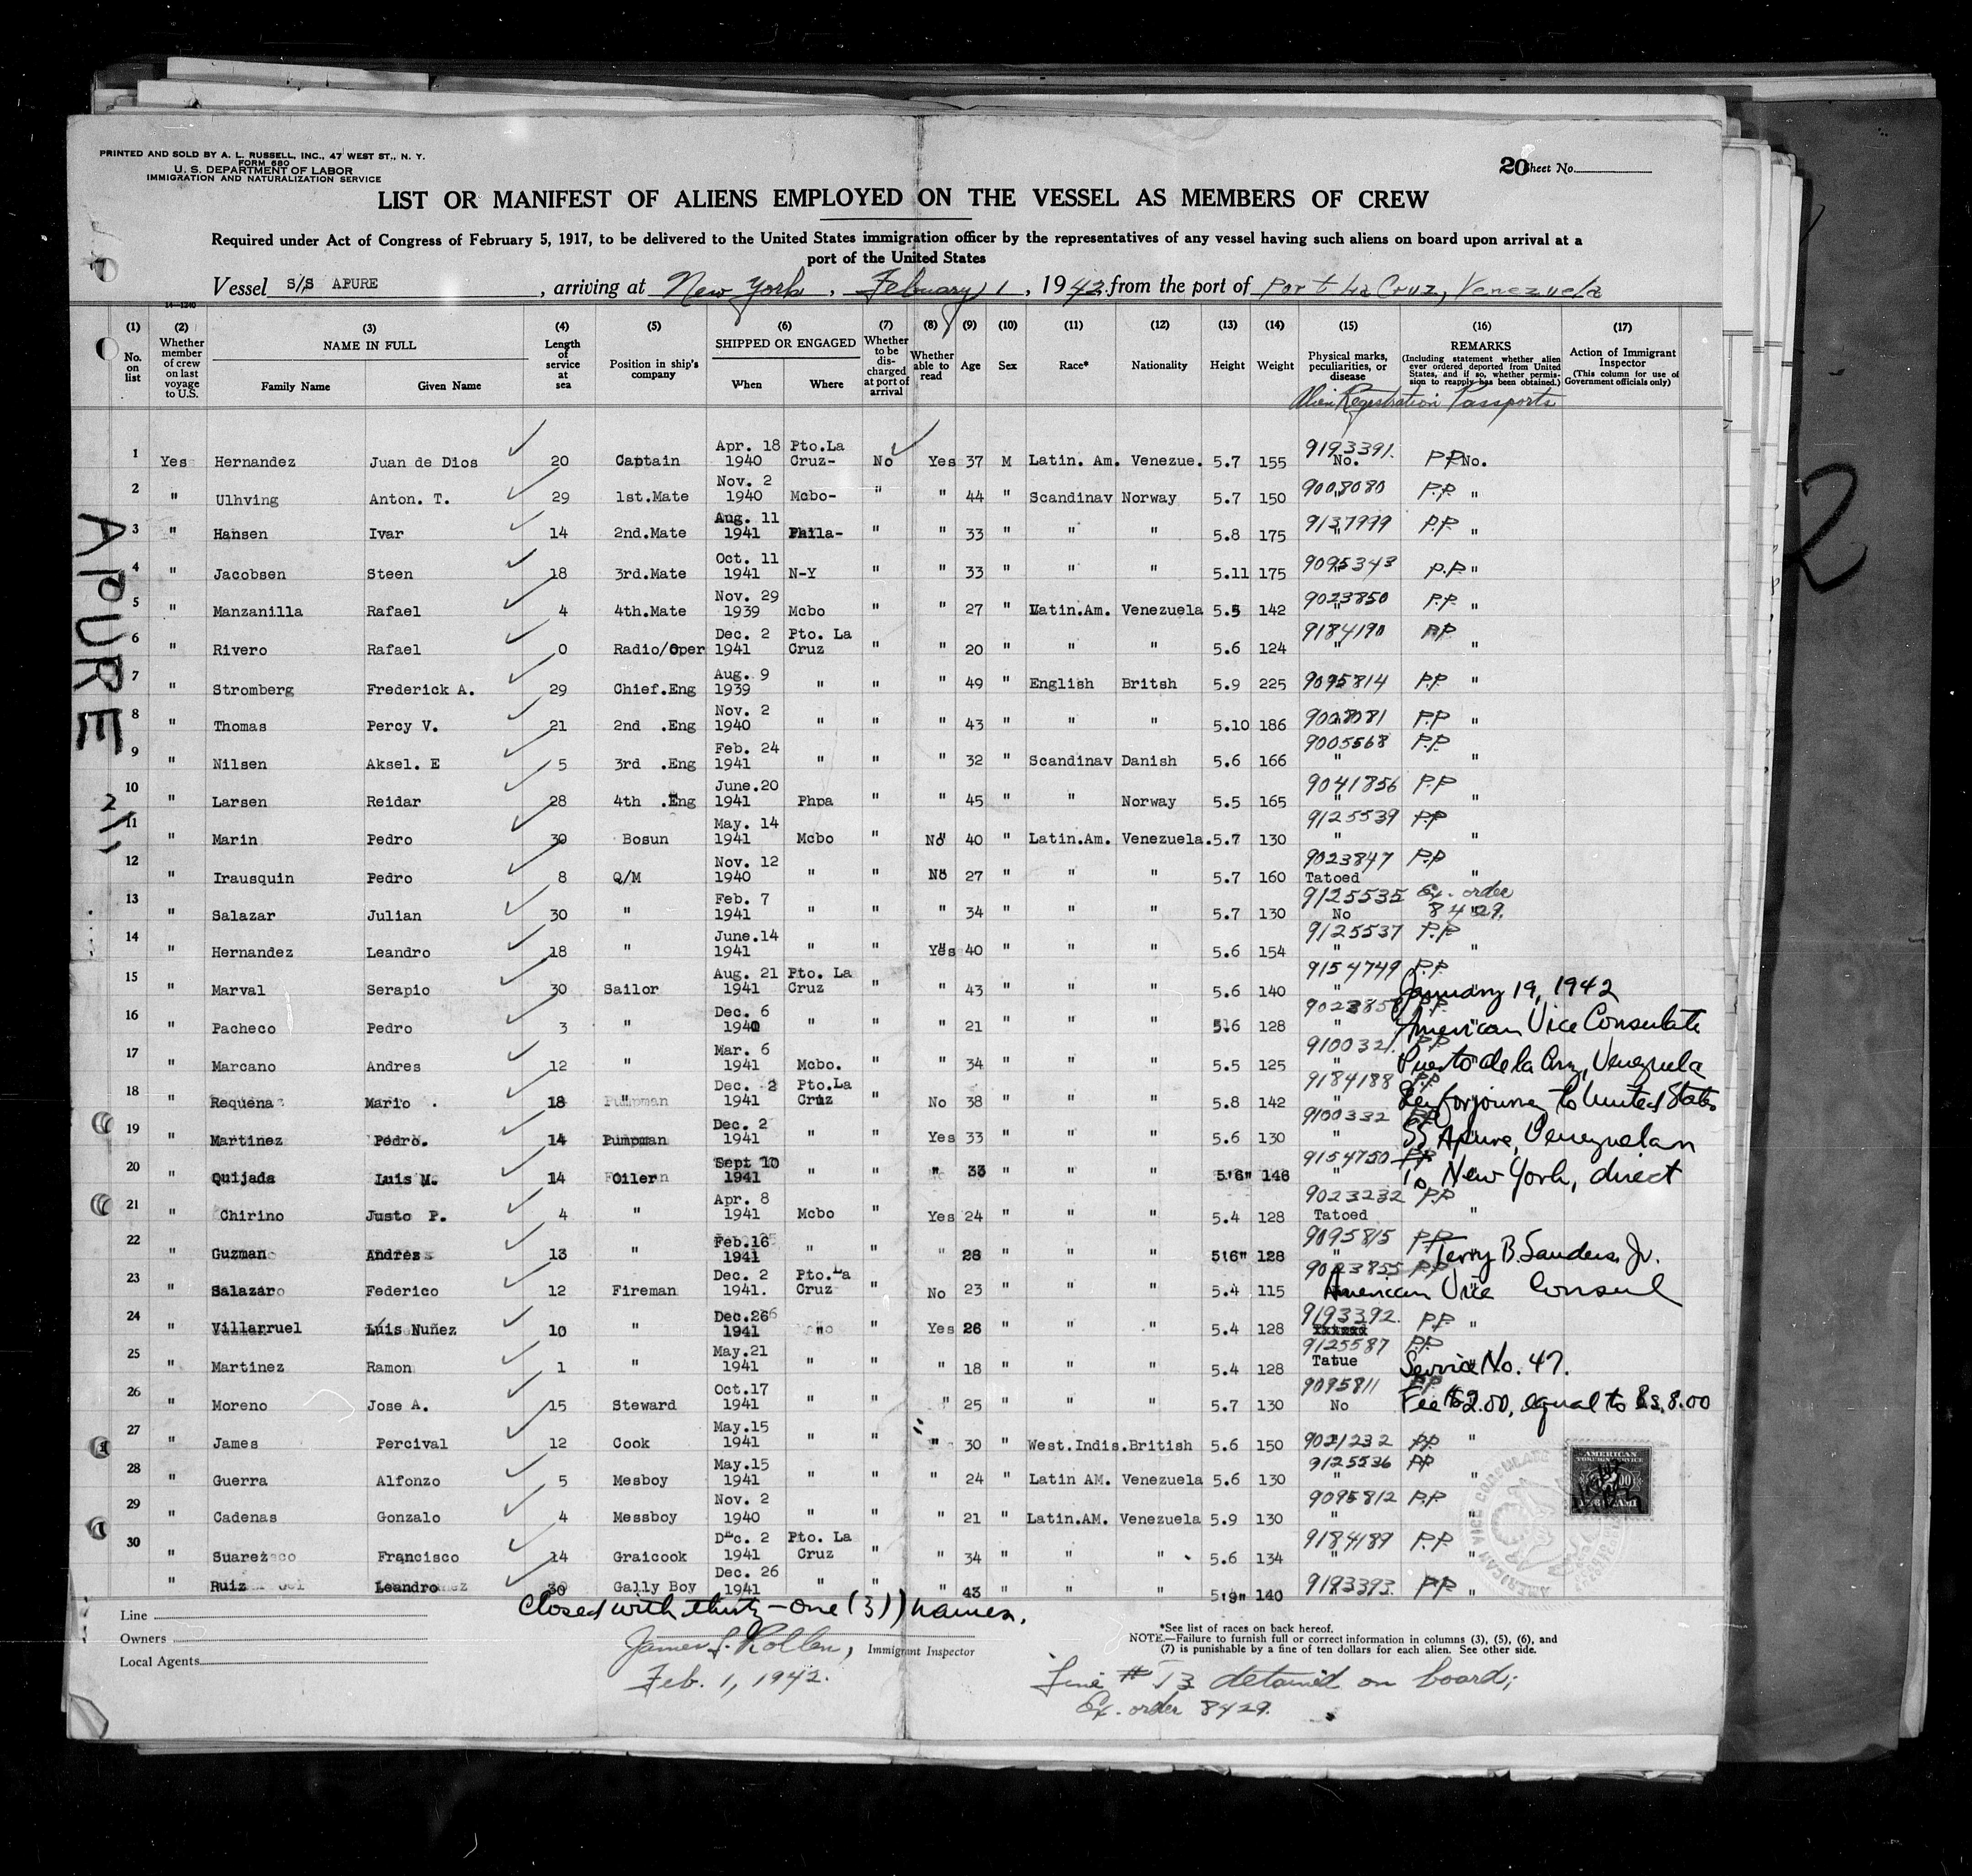 PRINTED AND SOLD BY A. L. RUSSELL, INC., 47 WEST ST., N. Y.
FORM 680
U. S. DEPARTMENT OF LABOR
IMMIGRATION AND NATURALIZATION SERVICE
20 Sheet No.
LIST OR MANIFEST OF ALIENS EMPLOYED ON THE VESSEL AS MEMBERS OF CREW
Required under Act of Congress of February 5, 1917, to be delivered to the United States immigration officer by the representatives of any vessel having such aliens on board upon arrival at a
port of the United States
Vessel S/S APURE, arriving at New York, February 1, 1942 from the port of Port La Cruz, Venezuela
14-1240
(1) (2) (3) (4) (5) (6) (7) (8) (9) (10) (11) (12) (13) (14) (15) (16) (17)
No. on list
Whether member of crew on last voyage to U.S.
NAME IN FULL
Family Name Given Name
Length of service at sea
Position in ship's company
SHIPPED OR ENGAGED
When Where
Whether to be discharged at port of arrival
Whether able to read
Age Sex Race* Nationality Height Weight
Physical marks, peculiarities, or disease
REMARKS
(Including statement whether alien ever ordered deported from United States, and if so, whether permission to reapply has been obtained.)
Action of Immigrant Inspector
(This column for use of Government officials only)
Alien Registration Passports
1 Yes Hernandez Juan de Dios 20 Captain Apr. 18 1940 Pto.La Cruz- No Yes 37 M Latin. Am. Venezue. 5.7 155 9193391. No. P.P. No.
2 " Ulhving Anton. T. 29 1st.Mate Nov. 2 1940 Mcbo- " " 44 " Scandinav Norway 5.7 150 9008080 P.P. "
3 " Hansen Ivar 14 2nd.Mate Aug. 11 1941 Phila- " " 33 " " " 5.8 175 9137999 P.P. "
4 " Jacobsen Steen 18 3rd.Mate Oct. 11 1941 N-Y " " 33 " " " 5.11 175 9095343 P.P. "
5 " Manzanilla Rafael 4 4th.Mate Nov. 29 1939 Mcbo " " 27 " Latin.Am. Venezuela 5.5 142 9023850 P.P. "
6 " Rivero Rafael 0 Radio/Oper Dec. 2 1941 Pto. La Cruz " " 20 " " " 5.6 124 9184190 P.P "
7 " Stromberg Frederick A. 29 Chief.Eng Aug. 9 1939 " " " 49 " English Britsh 5.9 225 9095814 P.P. "
8 " Thomas Percy V. 21 2nd .Eng Nov. 2 1940 " " " 43 " " " 5.10 186 9008081 P.P. "
9 " Nilsen Aksel. E 5 3rd .Eng Feb. 24 1941 " " " 32 " Scandinav Danish 5.6 166 9005568 P.P. "
10 " Larsen Reidar 28 4th .Eng June.20 1941 Phpa " " 45 " " Norway 5.5 165 9041856 P.P "
11 " Marin Pedro 30 Bosun May. 14 1941 Mcbo " No 40 " Latin.Am. Venezuela. 5.7 130 9125539 P.P "
12 " Irausquin Pedro 8 Q/M Nov. 12 1940 " " No 27 " " " 5.7 160 9023847 Tatoed P.P "
13 " Salazar Julian 30 " Feb. 7 1941 " " " 34 " " " 5.7 130 9125535 No Ex. order 8429.
14 " Hernandez Leandro 18 " June.14 1941 " " Yes 40 " " " 5.6 154 9125537 P.P. "
15 " Marval Serapio 30 Sailor Aug. 21 1941 Pto. La Cruz " " 43 " " " 5.6 140 9154749 P.P.
16 " Pacheco Pedro 3 " Dec. 6 1940 " " " 21 " " " 5.6 128 P.P.
17 " Marcano Andres 12 " Mar. 6 1941 Mcbo. " " 34 " " " 5.5 125 9100321. P.P
18 " Requena Mario 18 " Dec. 2 1941 Pto.La Cruz " No 38 " " " 5.8 142 9184188 P.P
19 " Martinez Pedro. 14 Pumpman Dec. 2 1941 " " Yes 33 " " " 5.6 130 9100332 P.P
20 " Quijada Luis M. 14 Oiler Sept 10 1941 " " " 33 " " " 5'6" 146 9154750 P.P
21 " Chirino Justo P. 4 " Apr. 8 1941 Mcbo " Yes 24 " " " 5.4 128 9023232 Tatoed P.P "
22 " Guzman Andres 13 " Feb.16 1941 " " " 28 " " " 5'6" 128 9095815 P.P
23 " Salazar Federico 12 Fireman Dec. 2 1941. Pto.La Cruz " No 23 " " " 5.4 115 9023855 P.P.
24 " Villarruel Luis Nuñez 10 " Dec.26 1941 " " Yes 26 " " " 5.4 128 9193392. P.P. "
25 " Martinez Ramon 1 " May.21 1941 " " " 18 " " " 5.4 128 9125587 Tatue P.P.
26 " Moreno Jose A. 15 Steward Oct.17 1941 " " " 25 " " " 5.7 130 9095811 No P.P.
27 " James Percival 12 Cook May.15 1941 " " " 30 " West.Indis. British 5.6 150 9021232 P.P. "
28 " Guerra Alfonzo 5 Mesboy May.15 1941 " " " 24 " Latin AM. Venezuela 5.6 130 9125536 P.P "
29 " Cadenas Gonzalo 4 Messboy Nov. 2 1940 " " " 21 " Latin.AM. Venezuela 5.9 130 9095812 P.P. "
30 " Suarez Francisco 14 Graicook Dec. 2 1941 Pto. La Cruz " " 34 " " " 5.6 134 9184189 P.P. "
" Ruiz Leandro 30 Gally Boy Dec. 26 1941 " " " 43 " " " 5'9" 140 9193393. P.P. "
January 19, 1942
American Vice Consulate
Puerto de la Cruz, Venezuela
for journey to United States
SS Apure, Venezuelan
to New York, direct
Terry B. Sanders, Jr.
American Vice Consul
Service No. 47.
Fee $2.00, equal to Bs. 8.00
AMERICAN VICE CONSULATE
AMERICAN
FOREIGN SERVICE
APURE
2/1
2
Closed with thirty-one (31) names.
Line
Owners
Local Agents
James S. Rollen, Immigrant Inspector
Feb. 1, 1942.
*See list of races on back hereof.
NOTE.—Failure to furnish full or correct information in columns (3), (5), (6), and
(7) is punishable by a fine of ten dollars for each alien. See other side.
Line # 13 detained on board;
Ex. order 8429.